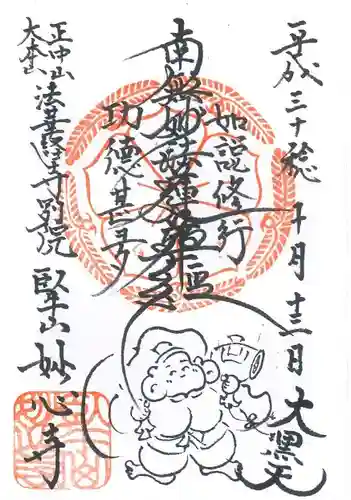 平成三十稔
十月十三日
大黒天
如説修行
南無妙法蓮華経
功徳甚多
正中山
大本山
法華経寺別院
堅山妙心寺